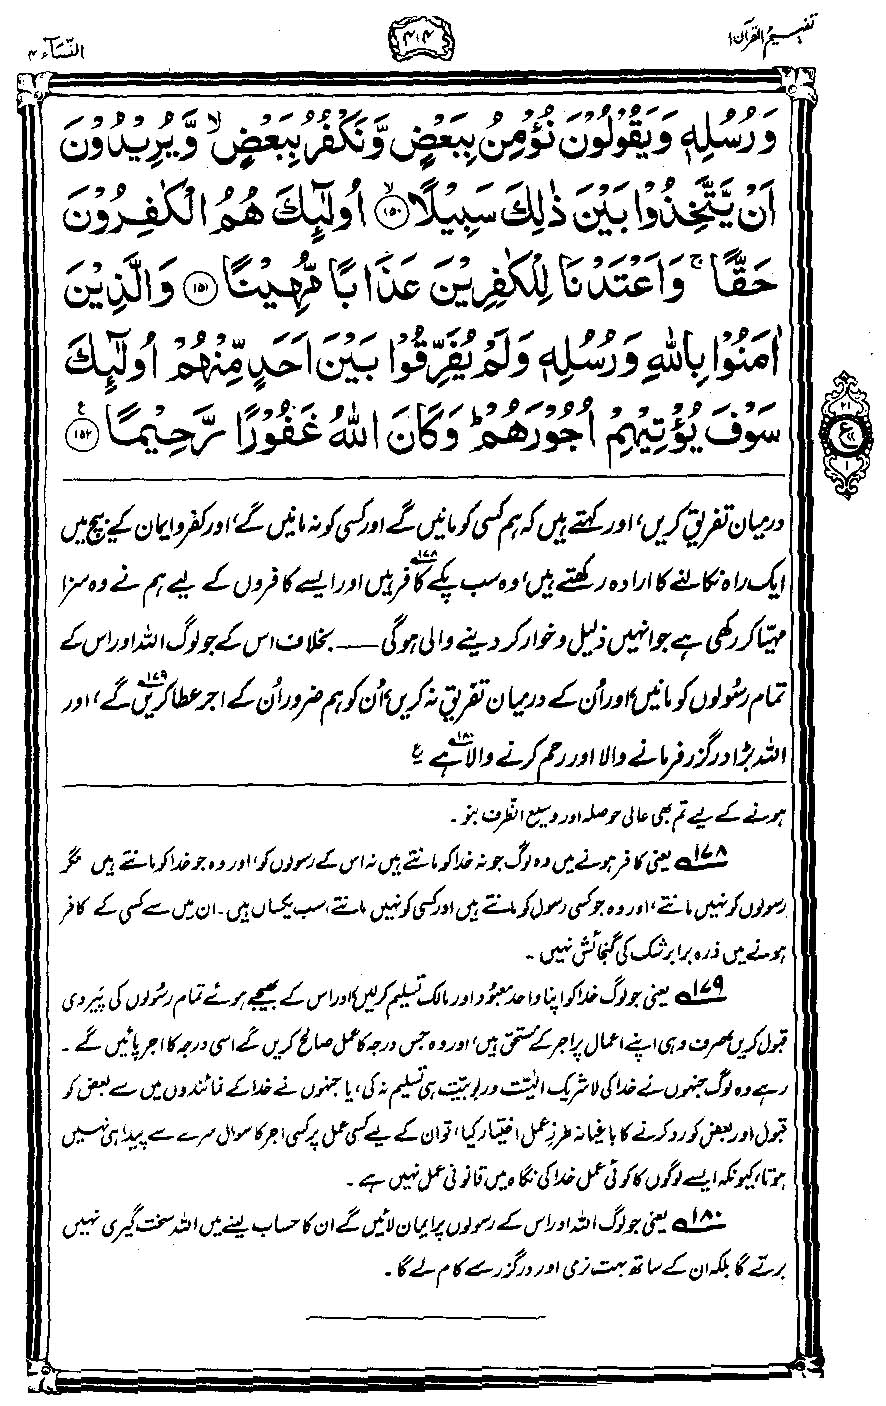 تفہیم القرآن ۱
۴۱۴
النسآء ۴
وَرُسُلِهٖ وَيَقُوْلُوْنَ نُؤْمِنُ بِبَعْضٍ وَّنَكْفُرُ بِبَعْضٍ ۙ وَّيُرِيْدُوْنَ
اَنْ يَّتَّخِذُوْا بَيْنَ ذٰلِكَ سَبِيْلًا ۙ﴿۱۵۰﴾ اُولٰٓئِكَ هُمُ الْكٰفِرُوْنَ
حَقًّا ۚ وَاَعْتَدْنَا لِلْكٰفِرِيْنَ عَذَابًا مُّهِيْنًا ﴿۱۵۱﴾ وَالَّذِيْنَ
اٰمَنُوْا بِاللّٰهِ وَرُسُلِهٖ وَلَمْ يُفَرِّقُوْا بَيْنَ اَحَدٍ مِّنْهُمْ اُولٰٓئِكَ
سَوْفَ يُؤْتِيْهِمْ اُجُوْرَهُمْ ؕ وَكَانَ اللّٰهُ غَفُوْرًا رَّحِيْمًا ﴿۱۵۲﴾ ع
۲۱
ع
۱
درمیان تفریق کریں، اور کہتے ہیں کہ ہم کسی کو مانیں گے اور کسی کو نہ مانیں گے، اور کفر و ایمان کے بیچ میں
ایک راہ نکالنے کا ارادہ رکھتے ہیں، وہ سب پکے کافر ہیں۱۷۸ اور ایسے کافروں کے لیے ہم نے وہ سزا
مہیّا کر رکھی ہے جو انہیں ذلیل و خوار کر دینے والی ہوگی —— بخلاف اس کے جو لوگ اللہ اور اس کے
تمام رسُولوں کو مانیں، اور اُن کے درمیان تفریق نہ کریں، اُن کو ہم ضرور اُن کے اجر عطا کریں گے۱۷۹، اور
اللہ بڑا درگزر فرمانے والا اور رحم کرنے والا ہے۱۸۰ ع
ہونے کے لیے تم بھی عالی حوصلہ اور وسیع الظّرف بنو۔
۱۷۸ یعنی کافر ہونے میں وہ لوگ جو نہ خدا کو مانتے ہیں نہ اس کے رسولوں کو، اور وہ جو خدا کو مانتے ہیں مگر
رسولوں کو نہیں مانتے، اور وہ جو کسی رسول کو مانتے ہیں اور کسی کو نہیں مانتے، سب یکساں ہیں۔ ان میں سے کسی کے کافر
ہونے میں ذرہ برابر شک کی گنجائش نہیں۔
۱۷۹ یعنی جو لوگ خدا کو اپنا واحد معبُود اور مالک تسلیم کرلیں اور اس کے بھیجے ہوئے تمام رسولوں کی پَیروی
قبول کریں صرف وہی اپنے اعمال پر اجر کے مستحق ہیں، اور وہ جس درجہ کا عمل صالح کریں گے اسی درجہ کا اجر پائیں گے۔
رہے وہ لوگ جنہوں نے خدا کی لاشریک الٰہیّت و ربوبیّت ہی تسلیم نہ کی، یا جنہوں نے خدا کے نمائندوں میں سے بعض کو
قبول اور بعض کو رد کرنے کا باغیانہ طرزِ عمل اختیار کیا، تو ان کے لیے کسی عمل پر کسی اجر کا سوال سرے سے پیدا ہی نہیں
ہوتا، کیونکہ ایسے لوگوں کا کوئی عمل خدا کی نگاہ میں قانونی عمل نہیں ہے۔
۱۸۰ یعنی جو لوگ اللہ اور اس کے رسولوں پر ایمان لائیں گے ان کا حساب لینے میں اللہ سخت گیری نہیں
برتے گا بلکہ ان کے ساتھ بہت نرمی اور درگزر سے کام لے گا۔